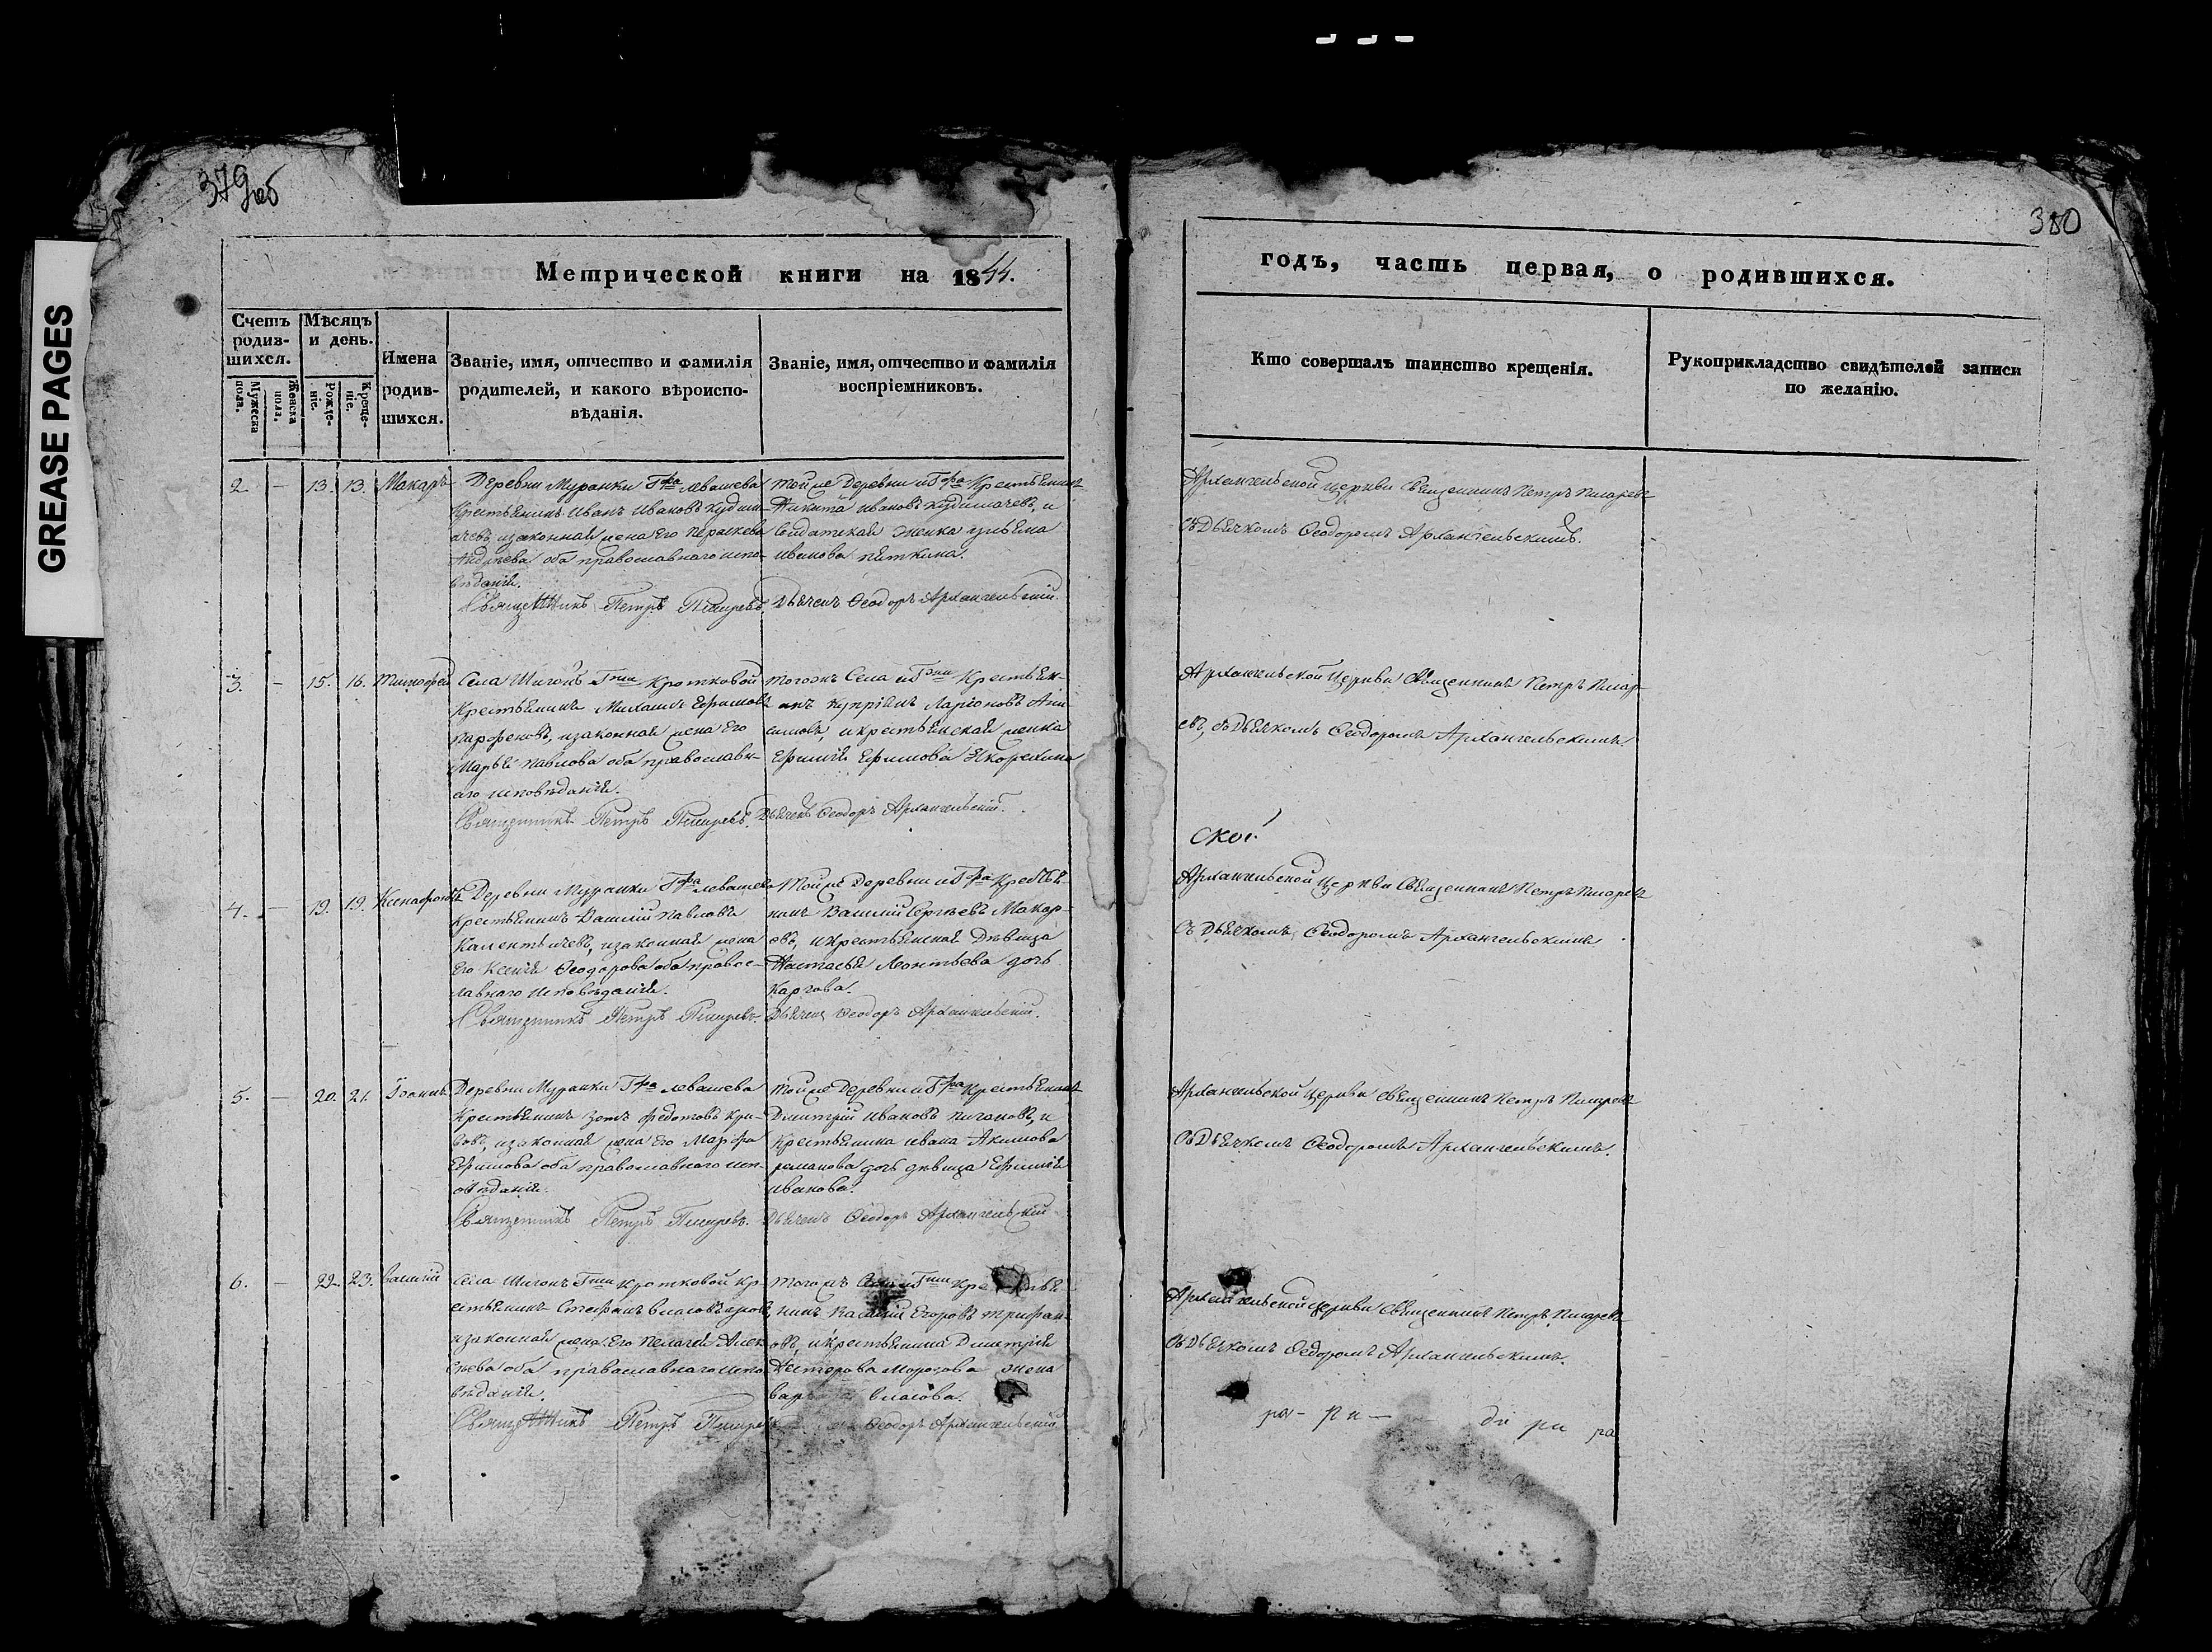 379об
380
GREASE PAGES
Метрической книги на 1844.
годъ, часть первая, о родившихся.
Счетъ родив-шихся.
Мужеска пола.
Женска пола.
Мѣсяцъ и день.
Рожде-ніе.
Креще-ніе.
Имена
родив-
шихся.
Званіе, имя, отчество и фамилія
родителей, и какого вѣроиспо-
вѣданія.
Званіе, имя, отчество и фамилія
воспріемниковъ.
Кто совершалъ таинство крещенія.
Рукоприкладство свидѣтелей записи
по желанію.
2. — 13. 13. Макаръ
Деревни Муранки Гра Левашева
Крестьянинъ Иванъ Ивановъ
и законная жена его Параскева
Андреева оба православнаго испо-
вѣданія.
Священникъ Петръ Писаревъ.
Той же Деревни и Гра Крестьянинъ
Никита Ивановъ и
Солдатская женка Ульяна
Иванова Пяткина.
Дьячекъ Ѳеодоръ Архангельскій.
Архангельской церкви Священникъ Петръ Писаревъ
съ Дьячкомъ Ѳеодоромъ Архангельскимъ.
3. — 15. 16. Тимофей
Села Шигонъ Гжи Кротковой
Крестьянинъ Михаилъ Ефимовъ
Парфеновъ, и законная жена его
Марья Павлова оба православн-
аго исповѣданія.
Священникъ Петръ Писаревъ.
Того жъ Села и Гжи Крестьян-
инъ Купріянъ Ларіоновъ Ани-
симовъ, и крестьянская женка
Ефимія Ефимова
Дьячекъ Ѳеодоръ Архангельскій.
Архангельской Церкви Священникъ Петръ Писар-
евъ, съ Дьячкомъ Ѳеодоромъ Архангельскимъ.
ской
4. — 19. 19. Ксенофонтъ
Деревни Муранки Гра Левашева
Крестьянинъ Василій Павловъ
и законная жена
его Ксенія Ѳеодорова оба правос-
лавнаго исповѣданія.
Священникъ Петръ Писаревъ.
Той же Деревни и Гра Крестья-
нинъ Василій Сергѣевъ Макар-
овъ, и крестьянская Дѣвица
Настасья Леонтьева дочь
Карпова.
Дьячекъ Ѳеодоръ Архангельскій.
Архангельской Церкви Священникъ Петръ Писаревъ
съ Дьячкомъ Ѳеодоромъ Архангельскимъ.
5. — 20. 21. Іоаннъ
Деревни Муранки Гра Левашева
Крестьянинъ Зотъ Федотовъ
и законная жена его Марфа
Ефимова оба православнаго исп-
овѣданія.
Священникъ Петръ Писаревъ.
Той же Деревни и Гра Крестьянинъ
Димитрій Ивановъ и
Крестьянина Ивана Акимова
Романова дочь дѣвица Ефимія
Иванова.
Дьячекъ Ѳеодоръ Архангельскій.
Архангельской Церкви Священникъ Петръ Писаревъ
съ Дьячкомъ Ѳеодоромъ Архангельскимъ.
6. — 22. 23. Василій
Села Шигонъ Гжи Кротковой Кр-
естьянинъ Стефанъ Власовъ
и законная жена его Пелагея Алек-
сѣева оба православнаго испо-
вѣданія.
Священникъ Петръ Писаревъ
Того жъ Села и Гжи Кре
нинъ Василій Егоровъ Трифон-
овъ, и крестьянина Димитрія
Нестерова Морозова жена
Власова.
Ѳеодоръ Архангельскій.
Архангельской Церкви Священникъ Петръ Писаревъ
съ Дьячкомъ Ѳедоромъ Архангельскимъ.